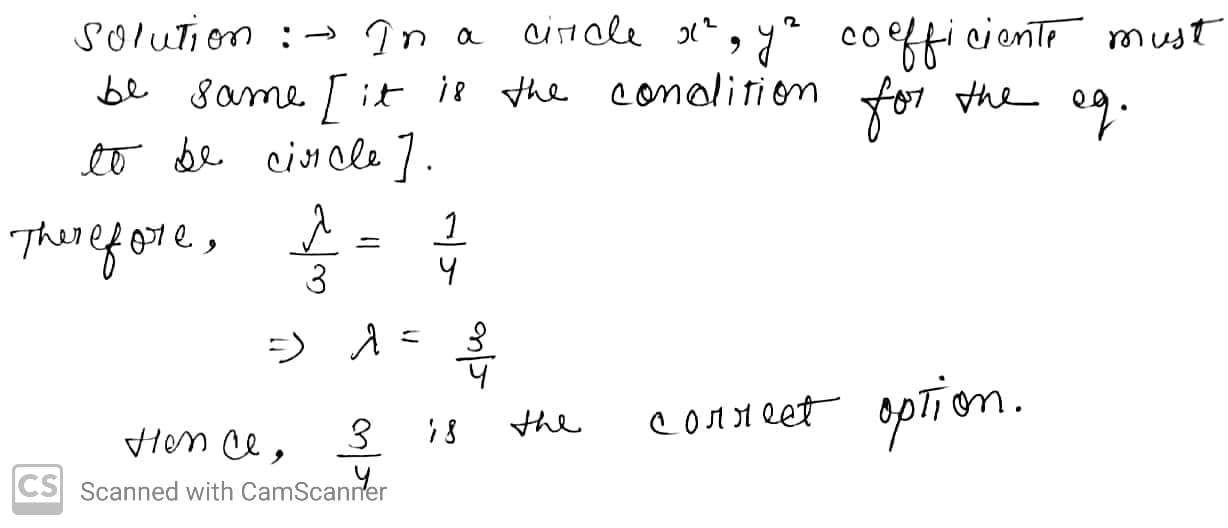 Solution :→ In a circle x², y² coefficients must
be same [ it is the condition for the eq.
to be circle ].
Therefore, λ/3 = 1/4
=> λ = 3/4
Hence, 3/4 is the correct option.
CS Scanned with CamScanner